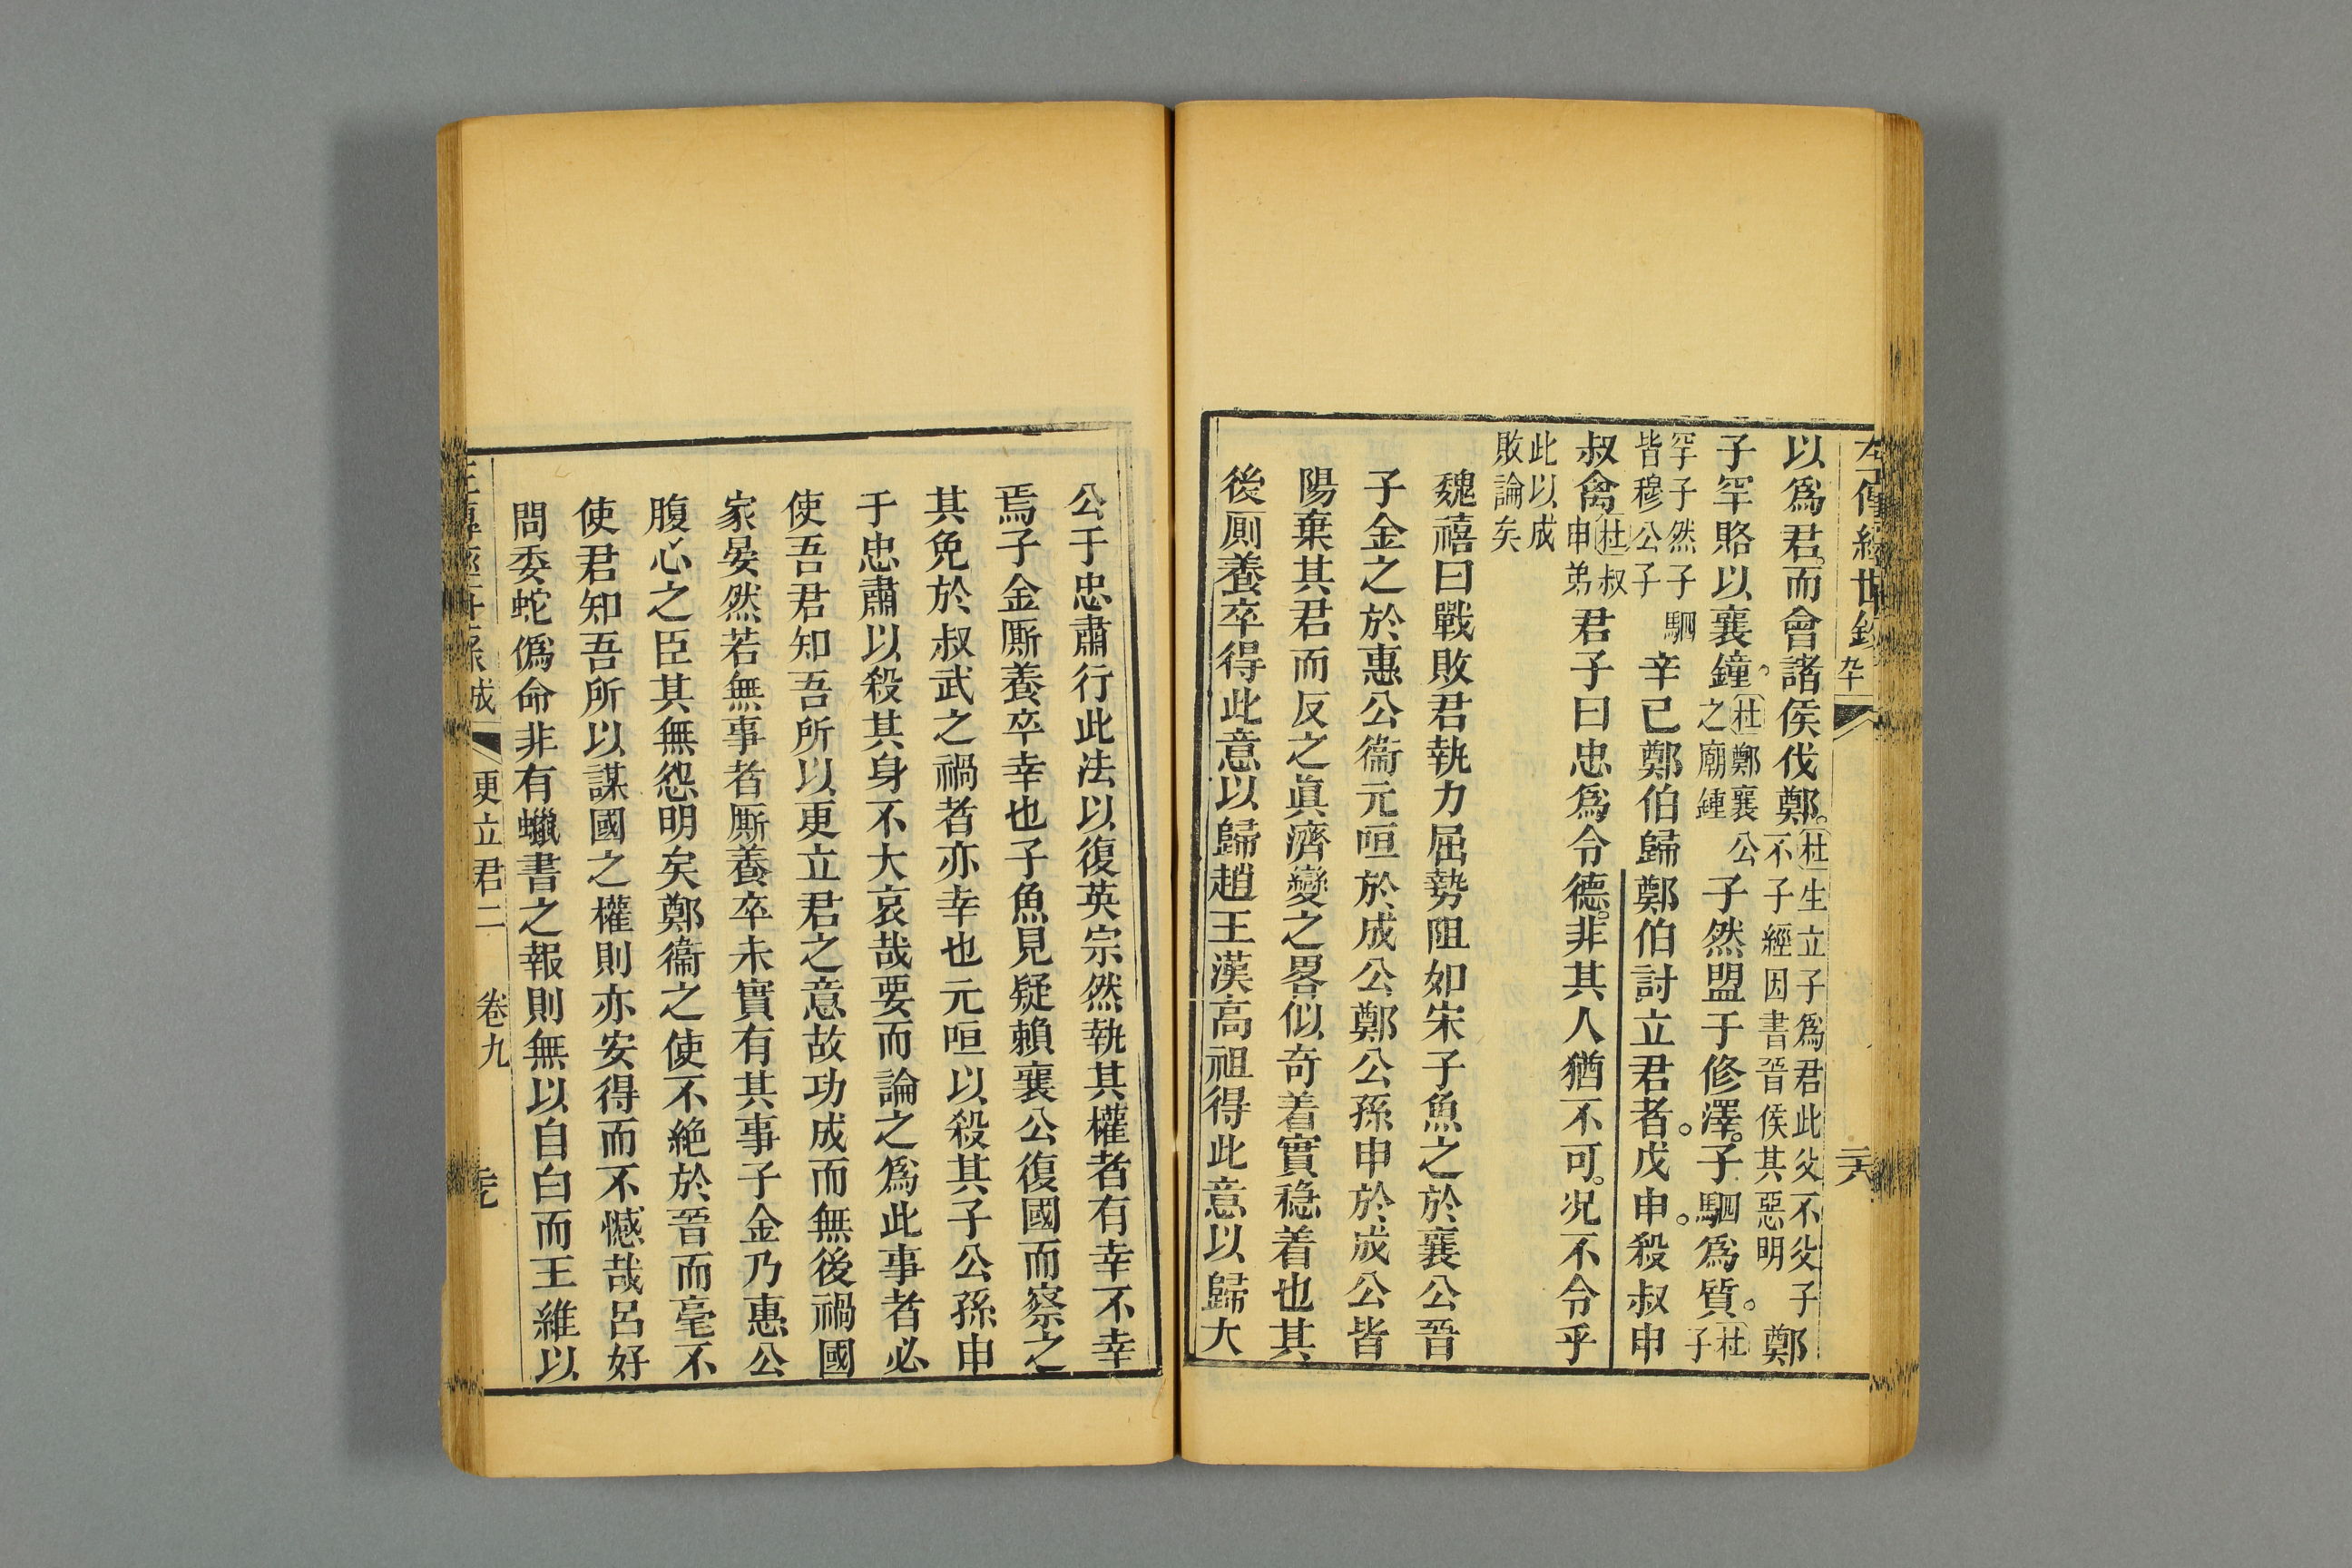 左傳經世鈔
以爲君而會諸侯伐鄭。杜生立子爲君此父不父子不子經因書晉侯其惡明鄭
子罕賂以襄鐘。杜鄭襄公之廟鍾子然盟于修澤。子駟爲質。杜子
罕子然子駟皆穆公子辛巳鄭伯歸鄭伯討立君者。戊申。殺叔申
叔禽杜叔申弟君子曰忠爲令德。非其人猶不可。况不令乎
此以成敗論矣
魏禧曰戰敗君執力屈勢阻如宋子魚之於襄公晉
子金之於惠公衞元咺於成公鄭公孫申於成公皆
陽棄其君而反之眞濟變之畧似奇着實穏着也其
後厠養卒得此意以歸趙王漢高祖得此意以歸大
公于忠肅行此法以復英宗然執其權者有幸不幸
焉子金厮養卒幸也子魚見疑賴襄公復國而察之
其免於叔武之禍者亦幸也元咺以殺其子公孫申
于忠肅以殺其身不大哀哉要而論之爲此事者必
使吾君知吾所以更立君之意故功成而無後禍國
家晏然若無事者厮養卒未實有其事子金乃惠公
腹心之臣其無怨明矣鄭衞之使不絶於晉而毫不
使君知吾所以謀國之權則亦安得而不憾哉呂好
問委蛇僞命非有蠟書之報則無以自白而王維以
成 更立君二 卷九